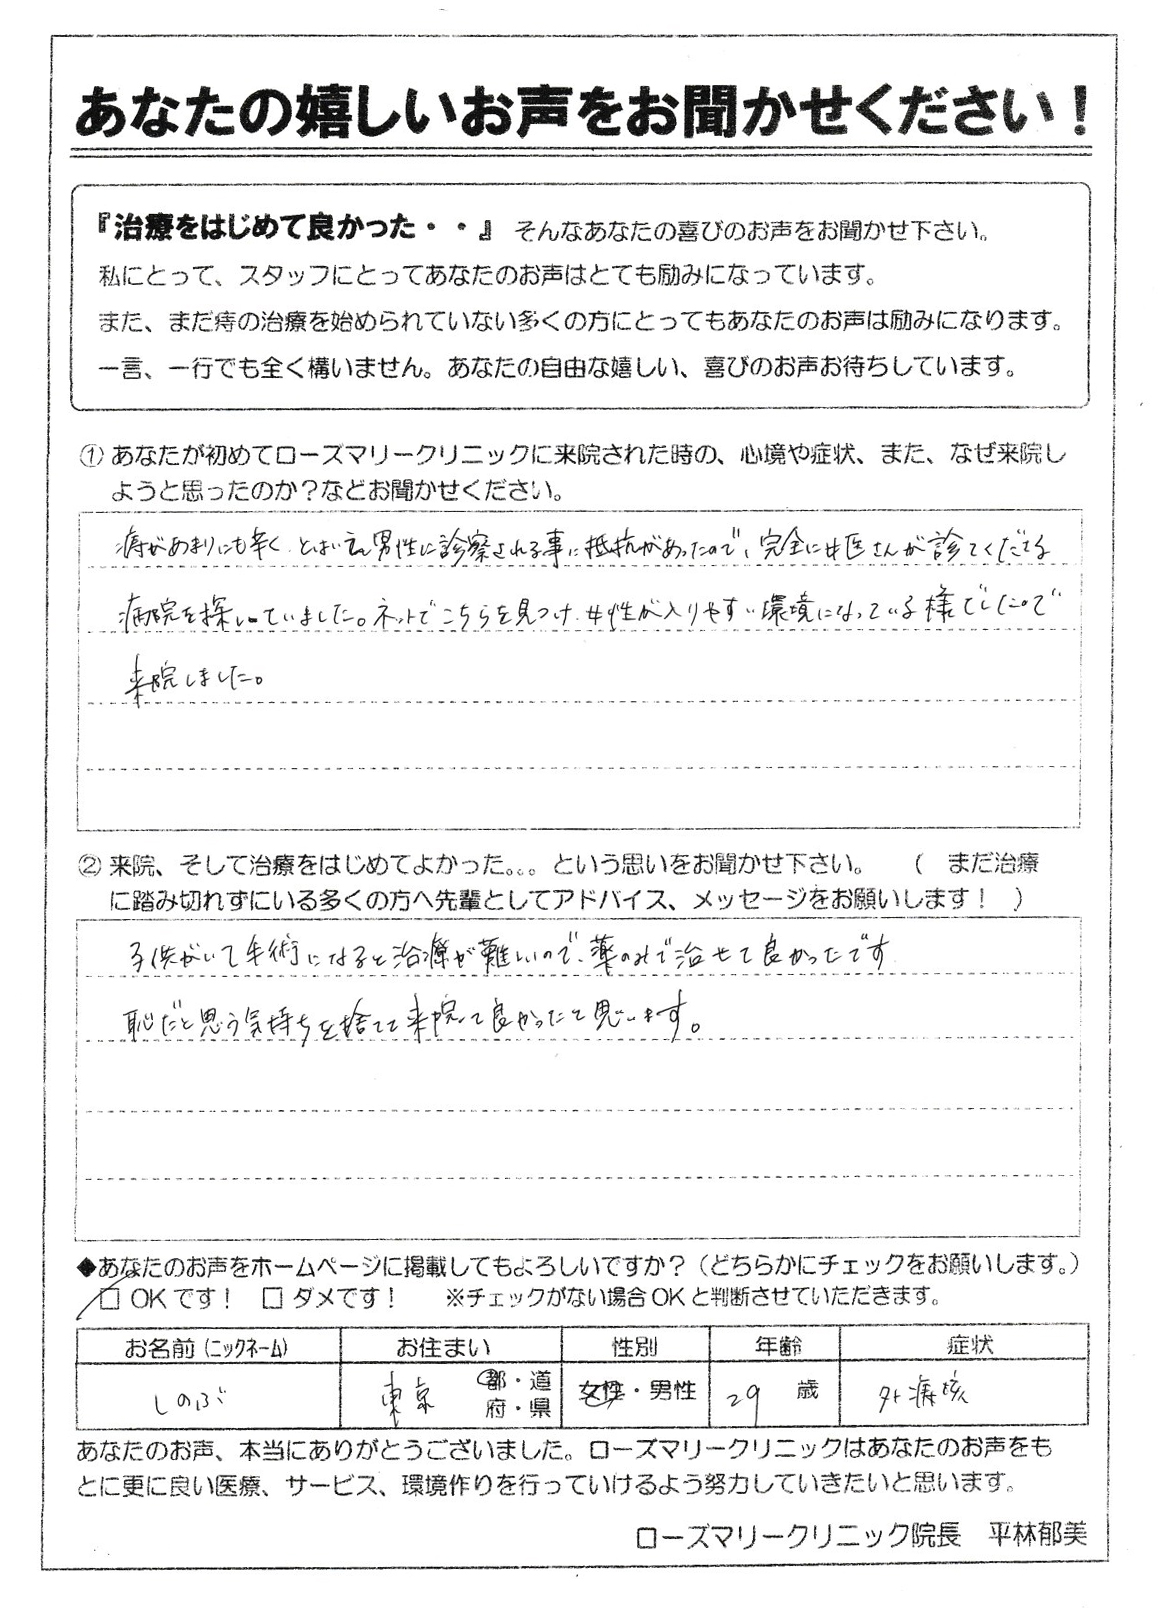 あなたの嬉しいお声をお聞かせください！
『治療をはじめて良かった・・』そんなあなたの喜びのお声をお聞かせ下さい。
私にとって、スタッフにとってあなたのお声はとても励みになっています。
また、まだ痔の治療を始められていない多くの方にとってもあなたのお声は励みになります。
一言、一行でも全く構いません。あなたの自由な嬉しい、喜びのお声お待ちしています。
① あなたが初めてローズマリークリニックに来院された時の、心境や症状、また、なぜ来院し
ようと思ったのか？などお聞かせください。
痔があまりにも辛く、とはいえ男性に診察される事に抵抗があったので、完全に女医さんが診てくださる
病院を探していました。ネットでこちらを見つけ、女性が入りやすい環境になっている様でしたので
来院しました。
② 来院、そして治療をはじめてよかった。。。という思いをお聞かせ下さい。 （ まだ治療
に踏み切れずにいる多くの方へ先輩としてアドバイス、メッセージをお願いします！ ）
子供がいて手術になると治療が難しいので、薬のみで治せて良かったです
恥だと思う気持ちを捨てて来院して良かったと思います。
◆あなたのお声をホームページに掲載してもよろしいですか？（どちらかにチェックをお願いします。）
□ OKです！ □ ダメです！ ※チェックがない場合OKと判断させていただきます。
お名前（ニックネーム） お住まい 性別 年齢 症状
しのぶ 東京 都・道 府・県 女性・男性 29 歳 外痔核
あなたのお声、本当にありがとうございました。ローズマリークリニックはあなたのお声をも
とに更に良い医療、サービス、環境作りを行っていけるよう努力していきたいと思います。
ローズマリークリニック院長 平林郁美